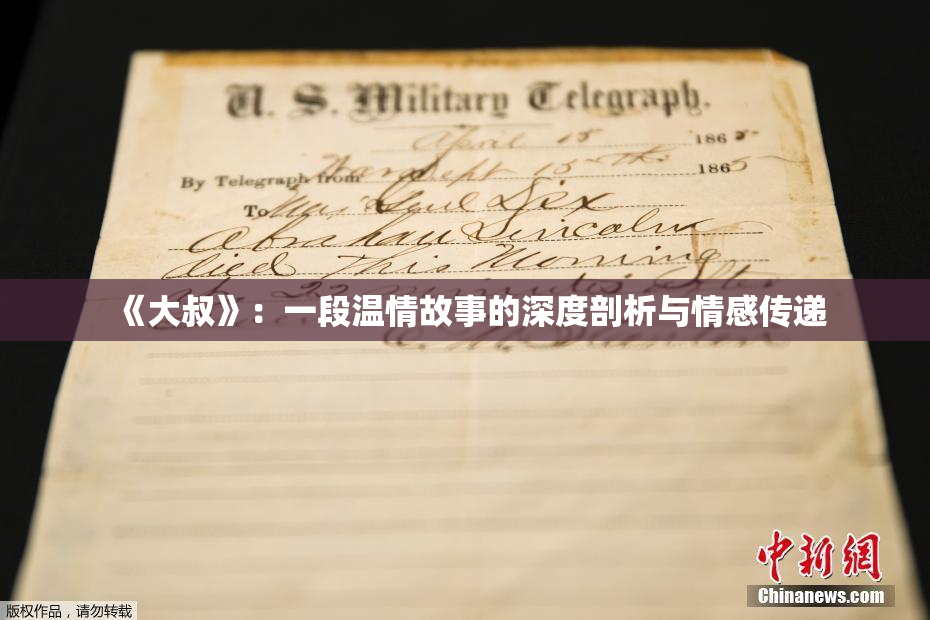 U. S. Military Telegraph.
April 15 1865
By Telegraph from War Dept 15th 1865
To Maj Genl Dix
Abraham Lincoln
died This Morning
at 22 minutes after
《大叔》：一段温情故事的深度剖析与情感传递
Stanton
中新网
Chinanews.com
版权作品，请勿转载